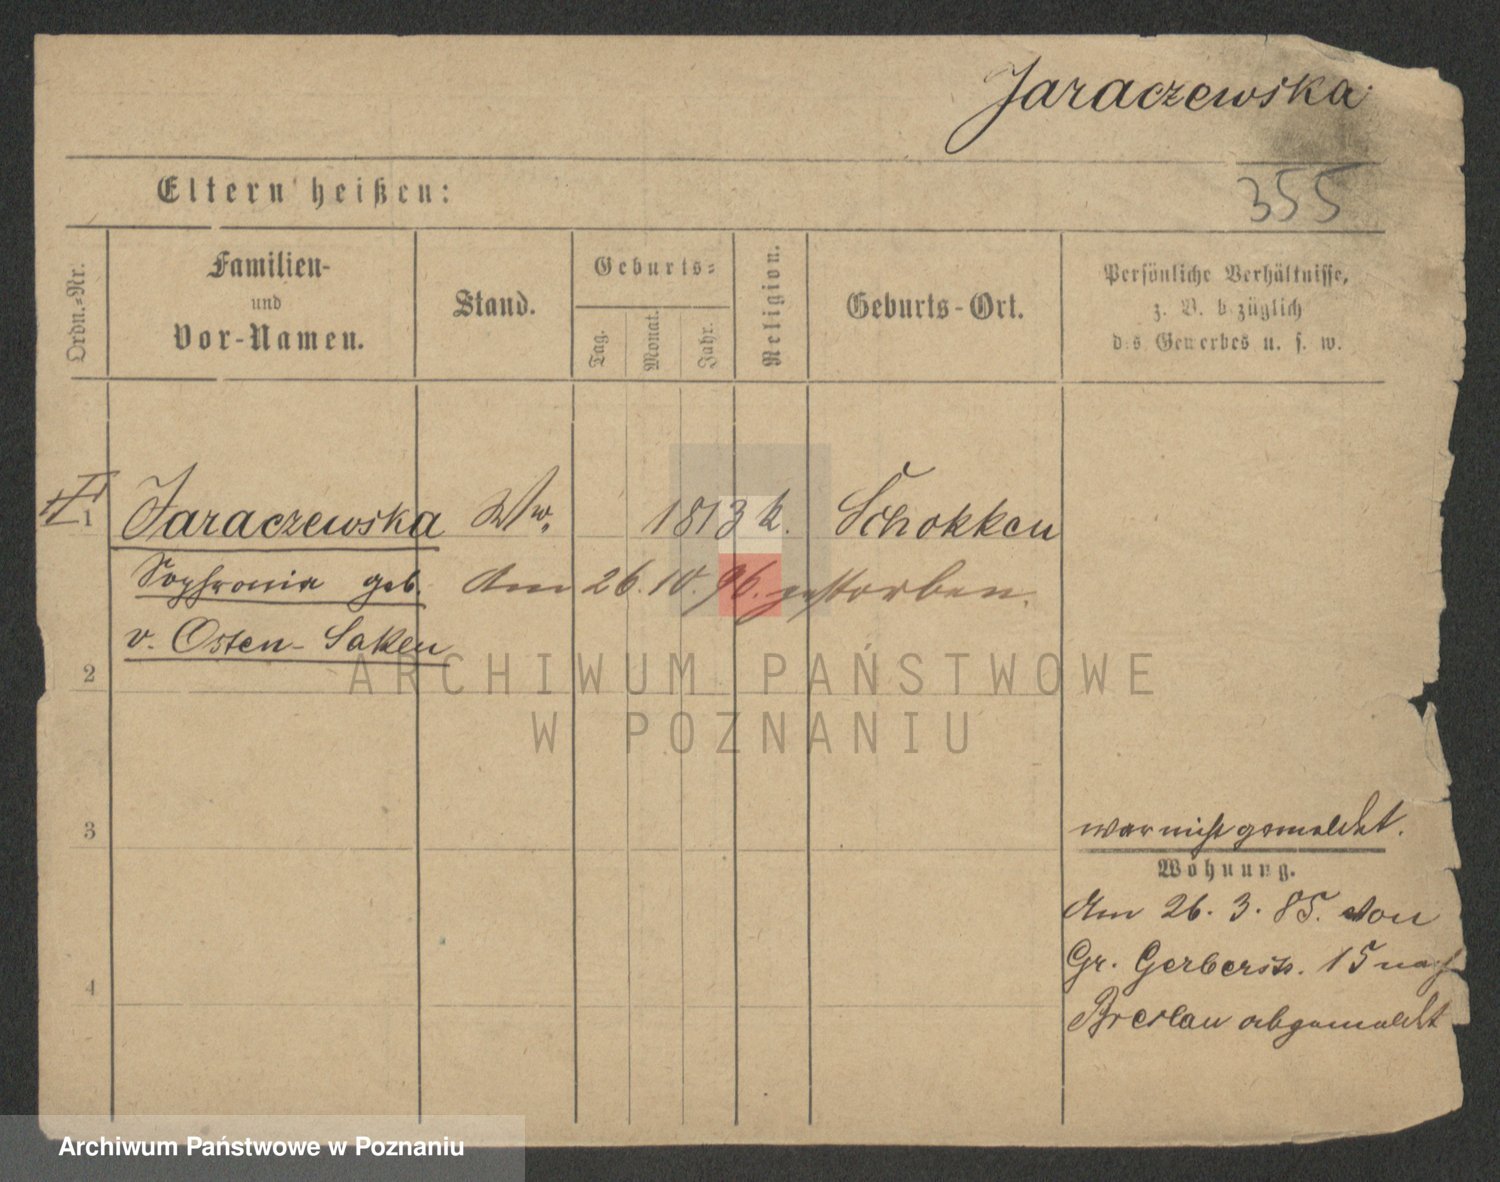 Jaraczewska
355
Eltern heißen:
Ordn.-Nr.
Familien-
und
Vor-Namen.
Stand.
Geburts-
Tag.
Monat.
Jahr.
Religion.
Geburts-Ort.
Persönliche Verhältnisse,
z. B. bezüglich
des Gewerbes u. s. w.
1 Jaraczewska Ww. 1813 k. Schokken
Sophronia geb. Am 26.10.96. gestorben.
v. Osten-Saken
2
3
war nicht gemeldet.
Wohnung.
Am 26. 3. 85. von
Gr. Gerberstr. 15 nach
4
Breslau abgemeldet
ARCHIWUM PAŃSTWOWE
W POZNANIU
Archiwum Państwowe w Poznaniu